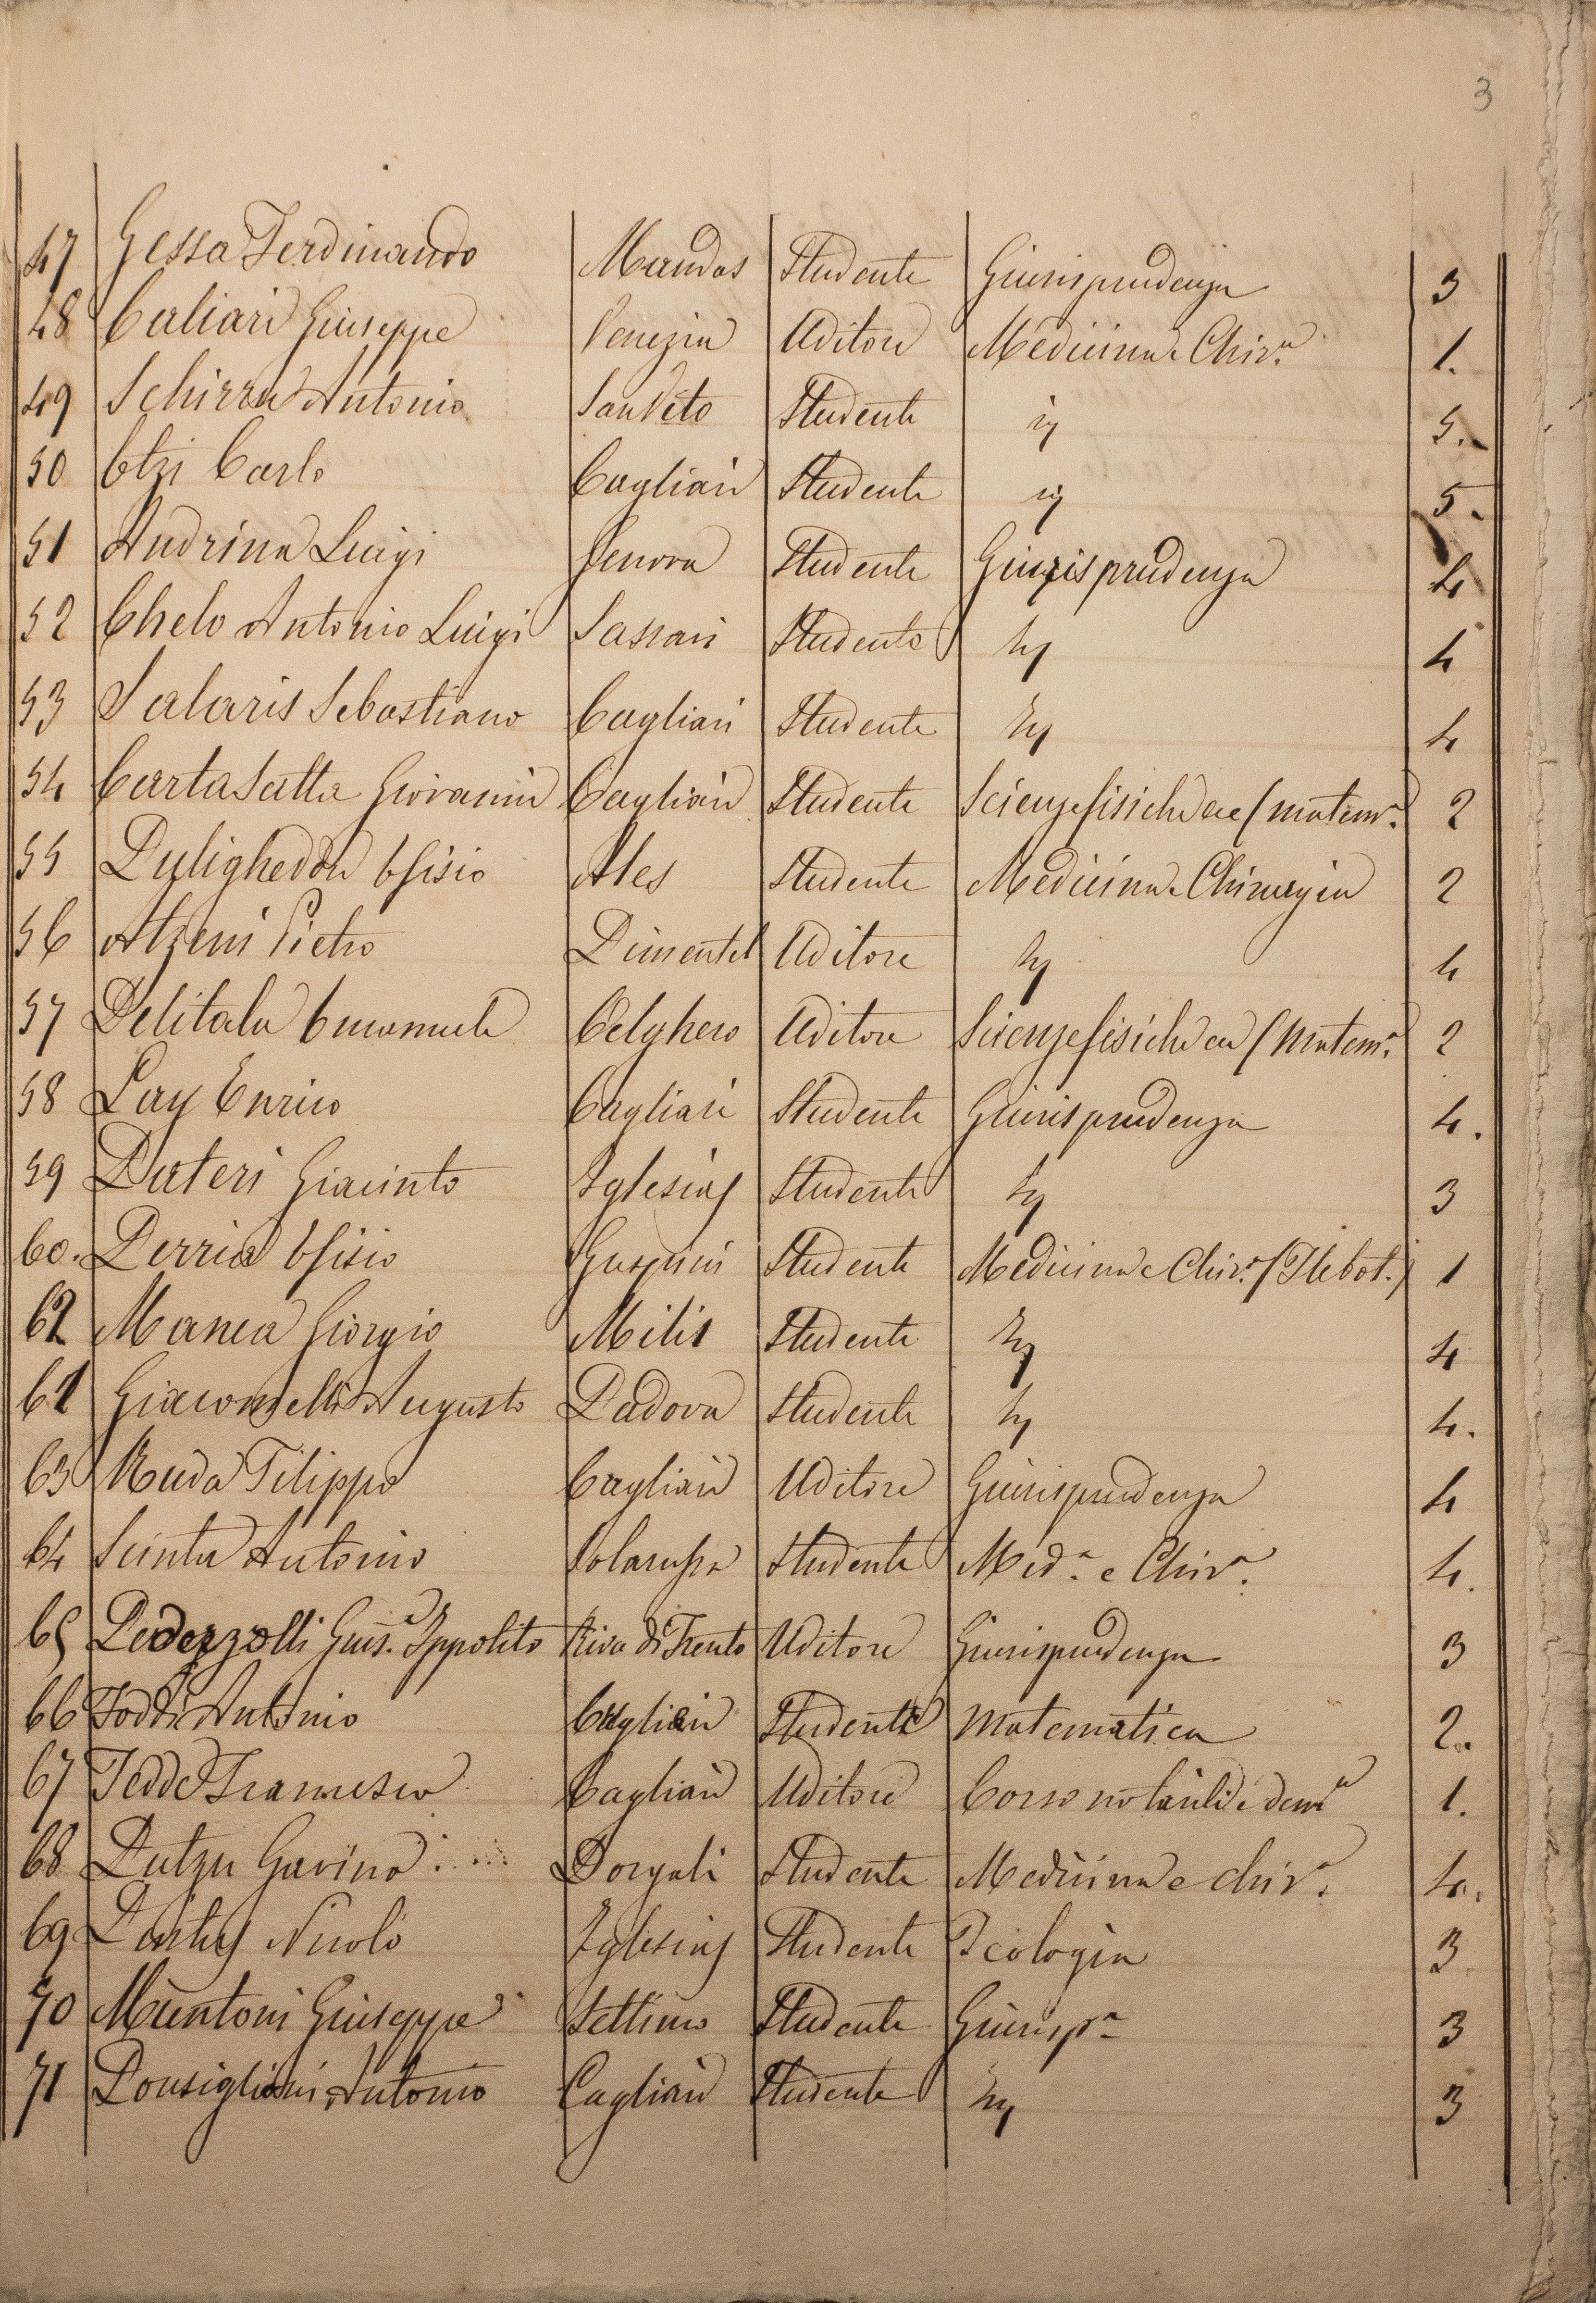 3
47 Gessa Ferdinando Mandas Studente Giurisprudenza 3
48 Caliari Giuseppe Venezia Uditore Medicina e Chir.a 1.
49 Schirra Antonio San Vito Studente id 5.
50 Etzi Carlo Cagliari Studente id 5.
51 Andrina Luigi Genova Studente Giurisprudenza 4
52 Chelo Antonio Luigi Sassari Studente id 4
53 Salaris Sebastiano Cagliari Studente id 4
54 Carta Satta Giovanni Cagliari Studente Scienze fisiche ee (matem.a) 2
55 Puligheddu Efisio Ales Studente Medicina e Chirurgia 2
56 Atzeni Pietro Pimentel Uditore id 4
57 Delitala Emanuele Uditore Scienze fisiche ee (Matem.a) 2
58 Lay Enrico Cagliari Studente Giurisprudenza 4.
59 Pateri Giacinto Iglesias Studente id 3
60. Perria Efisio Guspini Studente Medicina e Chir.a (Flebot.) 1
62 Manca Giorgio Milis Studente id 4
61 Giacomelli Augusto Padova Studente id 4.
63 Ruda Filippo Cagliari Uditore Giurisprudenza 4
64 Scintu Antonio Solarussa Studente Med.a e Chir.a 4.
65 Pederzolli Gius.e Ippolito Riva di Trento Uditore Giurisprudenza 3
66 Foddi Antonio Cagliari Studente Matematica 2.
67 Tedde Francesco Cagliari Uditore Corso 1.
68 Putzu Gavino Dorgali Studente Medicina e chir.a 4.
69 Pintus Nicolò Iglesias Studente Teologia 3
70 Muntoni Giuseppe Settimo Studente Giurisp.a 3
71 Ponsiglioni Antonio Cagliari Studente id 3